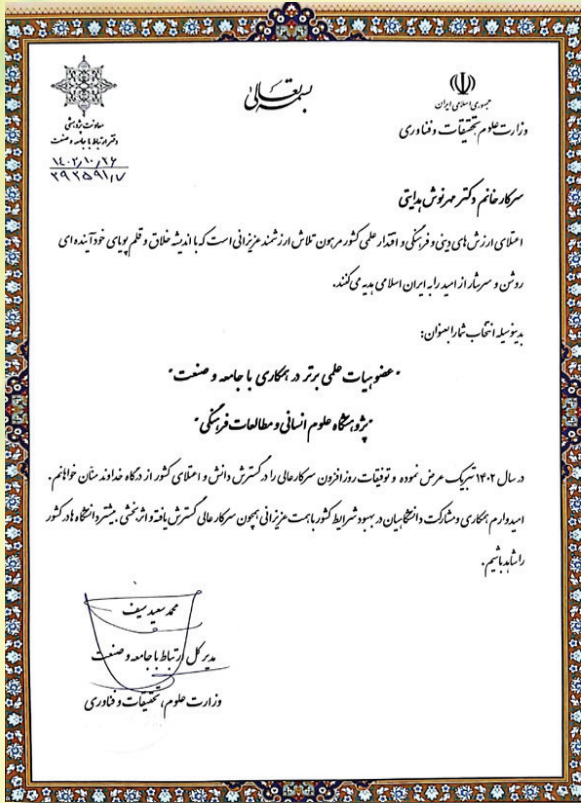 بسمه تعالی
جمهوری اسلامی ایران
وزارت علوم تحقیقات و فناوری
معاونت پژوهشی
دفتر ارتباط با جامعه و صنعت
۱۴۰۲/۱۰/۲۶
۲۹۲۵۹۱/۷
سرکار خانم دکتر مهرنوش هدایتی
اعتلای ارزش های دینی و فرهنگی و اقتدار علمی کشور مرهون تلاش ارزشمند عزیزانی است که با اندیشه خلاق و قلم پویای خود آینده ای
روشن و سرشار از امید را به ایران اسلامی هدیه می کنند.
بدینوسیله انتخاب شما را بعنوان:
"عضو هیات علمی برتر در همکاری با جامعه و صنعت"
"پژوهشگاه علوم انسانی و مطالعات فرهنگی"
در سال ۱۴۰۲ تبریک عرض نموده و توفیقات روز افزون سرکار عالی را در گسترش دانش و اعتلای کشور از درگاه خداوند منان خواهانم.
امیدوارم همکاری و مشارکت دانشگاهیان در بهبود شرایط کشور با همت عزیزانی همچون سرکار عالی گسترش یافته و اثربخشی بیشتر دانشگاه ها در کشور
را شاهد باشیم.
محمد سعید سیف
مدیر کل ارتباط با جامعه و صنعت
وزارت علوم، تحقیقات و فناوری